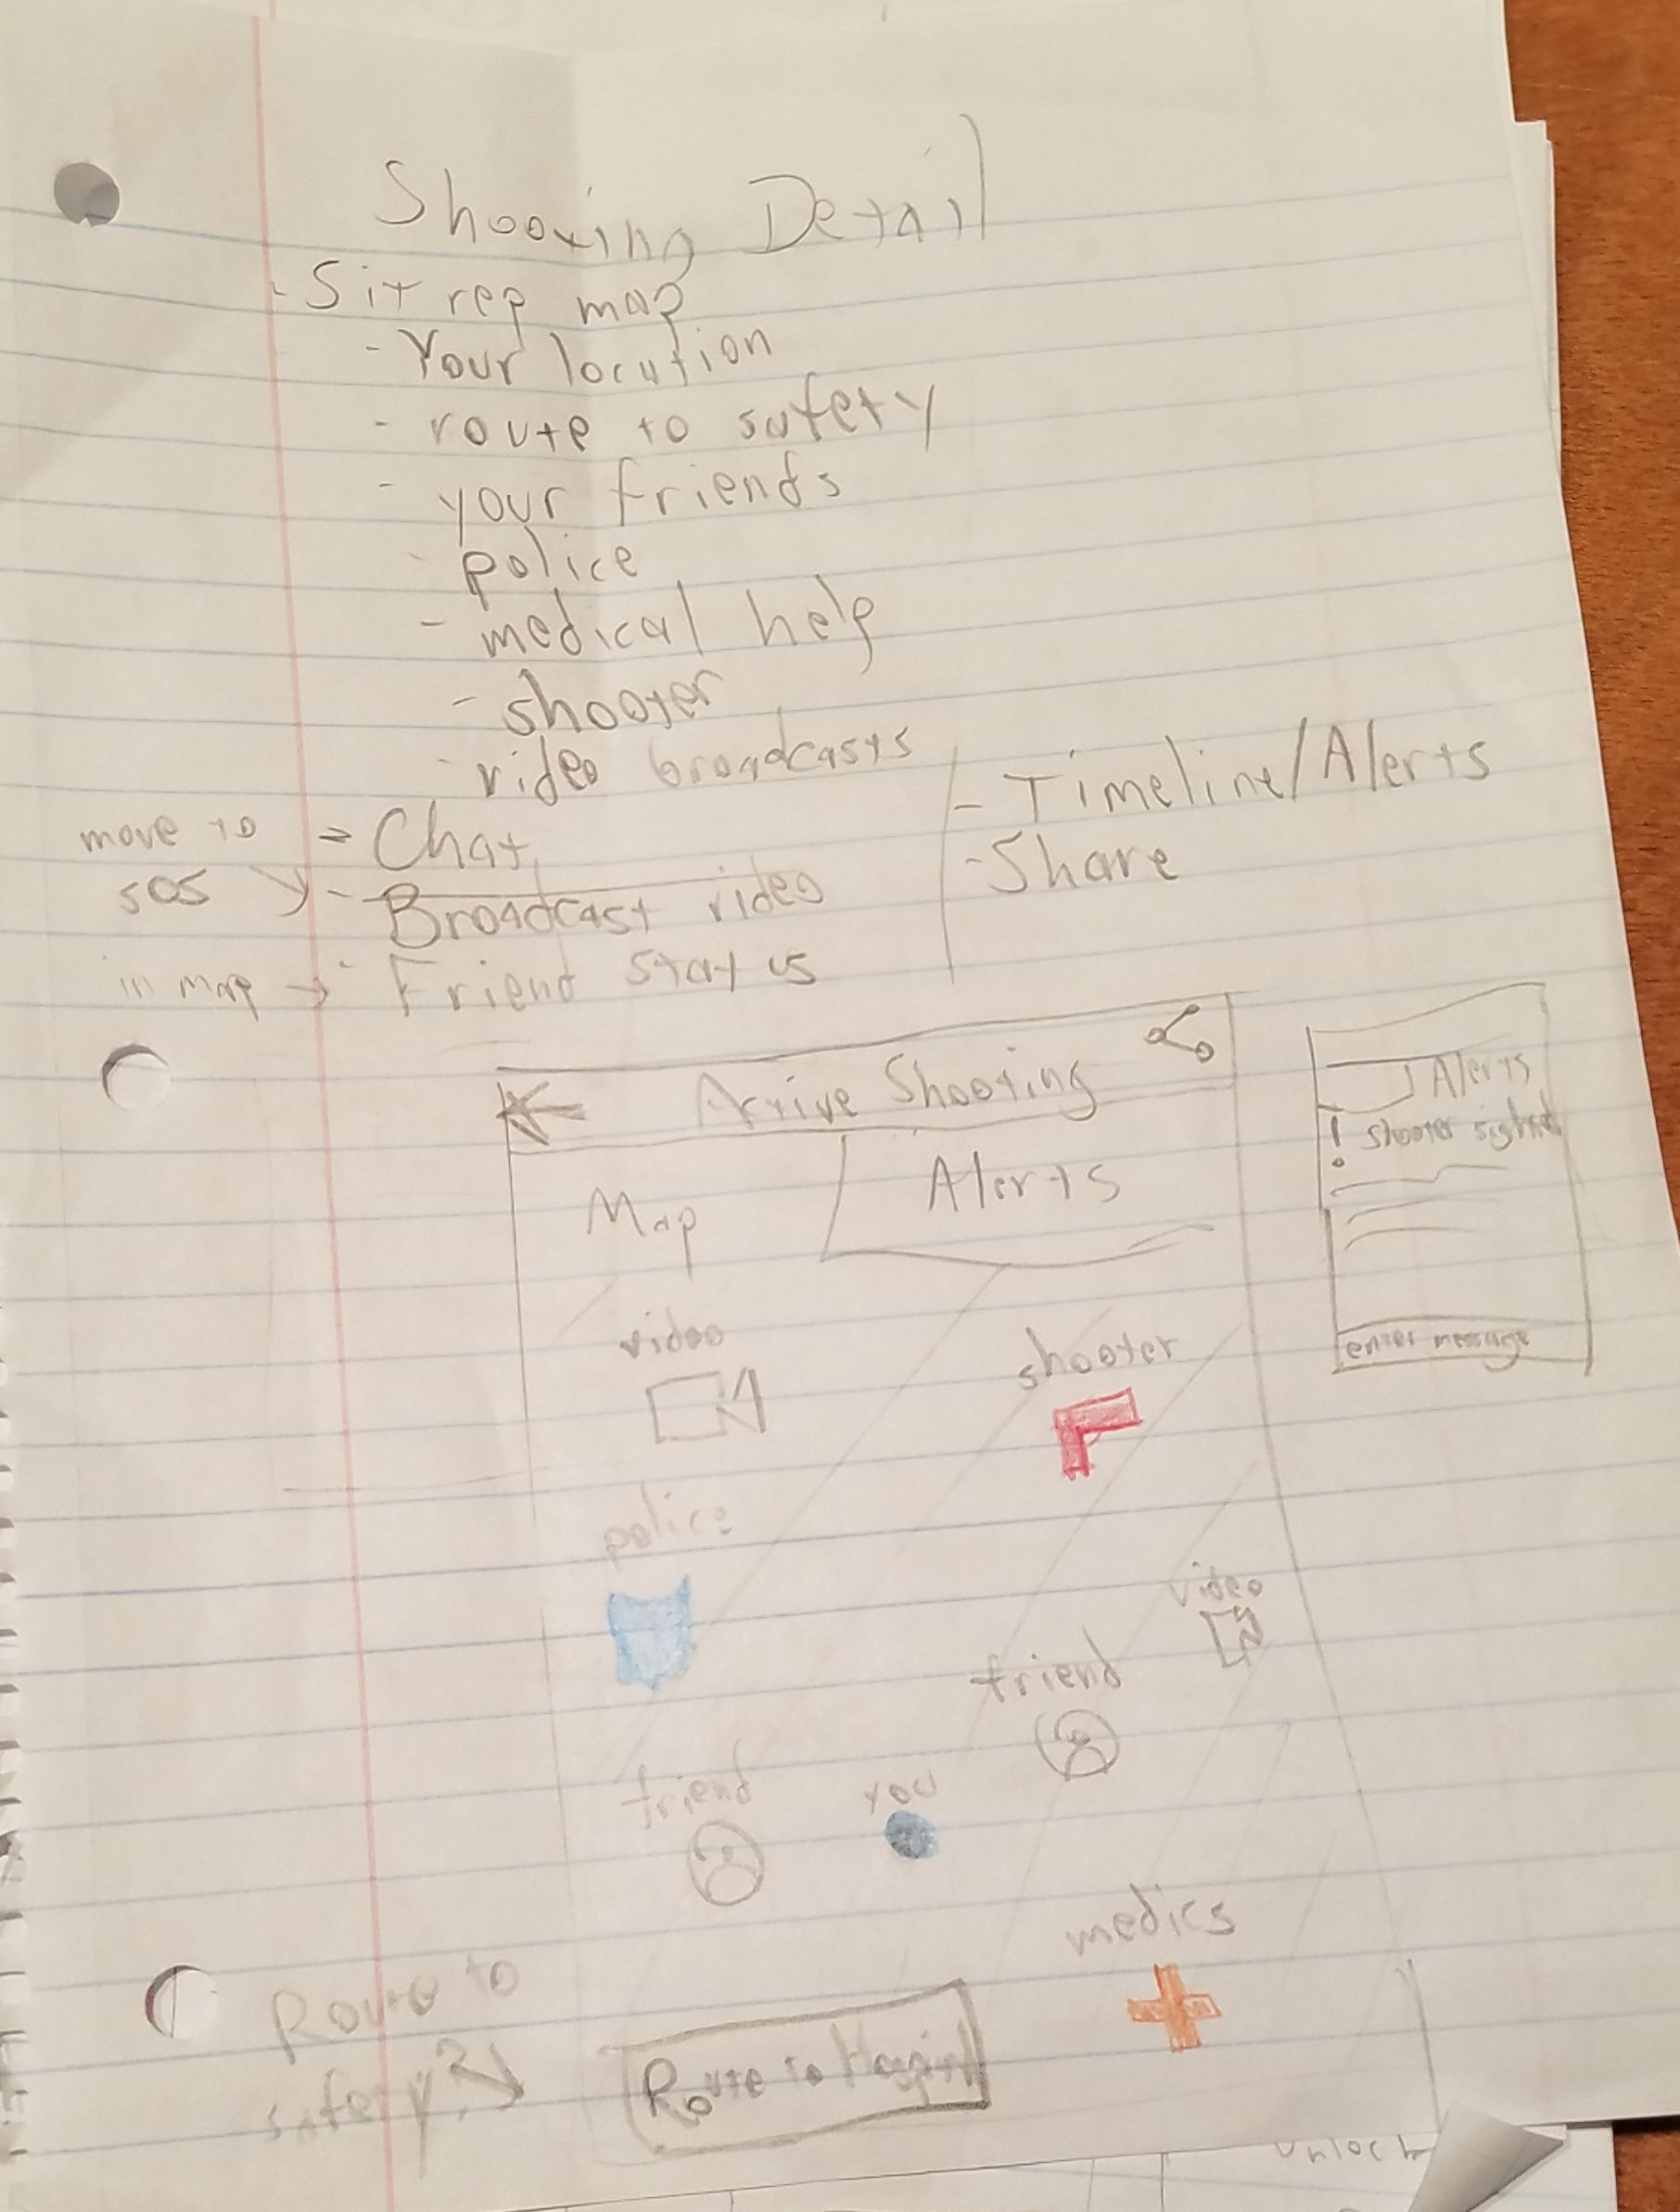 Shooting Detail
- Sit rep map
- Your location
- route to safety
- your friends
- police
- medical help
- shooter
- video broadcasts
- Timeline/Alerts
- Share
move to SOS
- Chat
- Broadcast video
in map → - Friend Status
Active Shooting
Map
Alerts
video
shooter
police
video
friend
friend
you
medics
Route to
safety?
Route to Hospital
Alerts
! shooter sighted
enter message
unlock